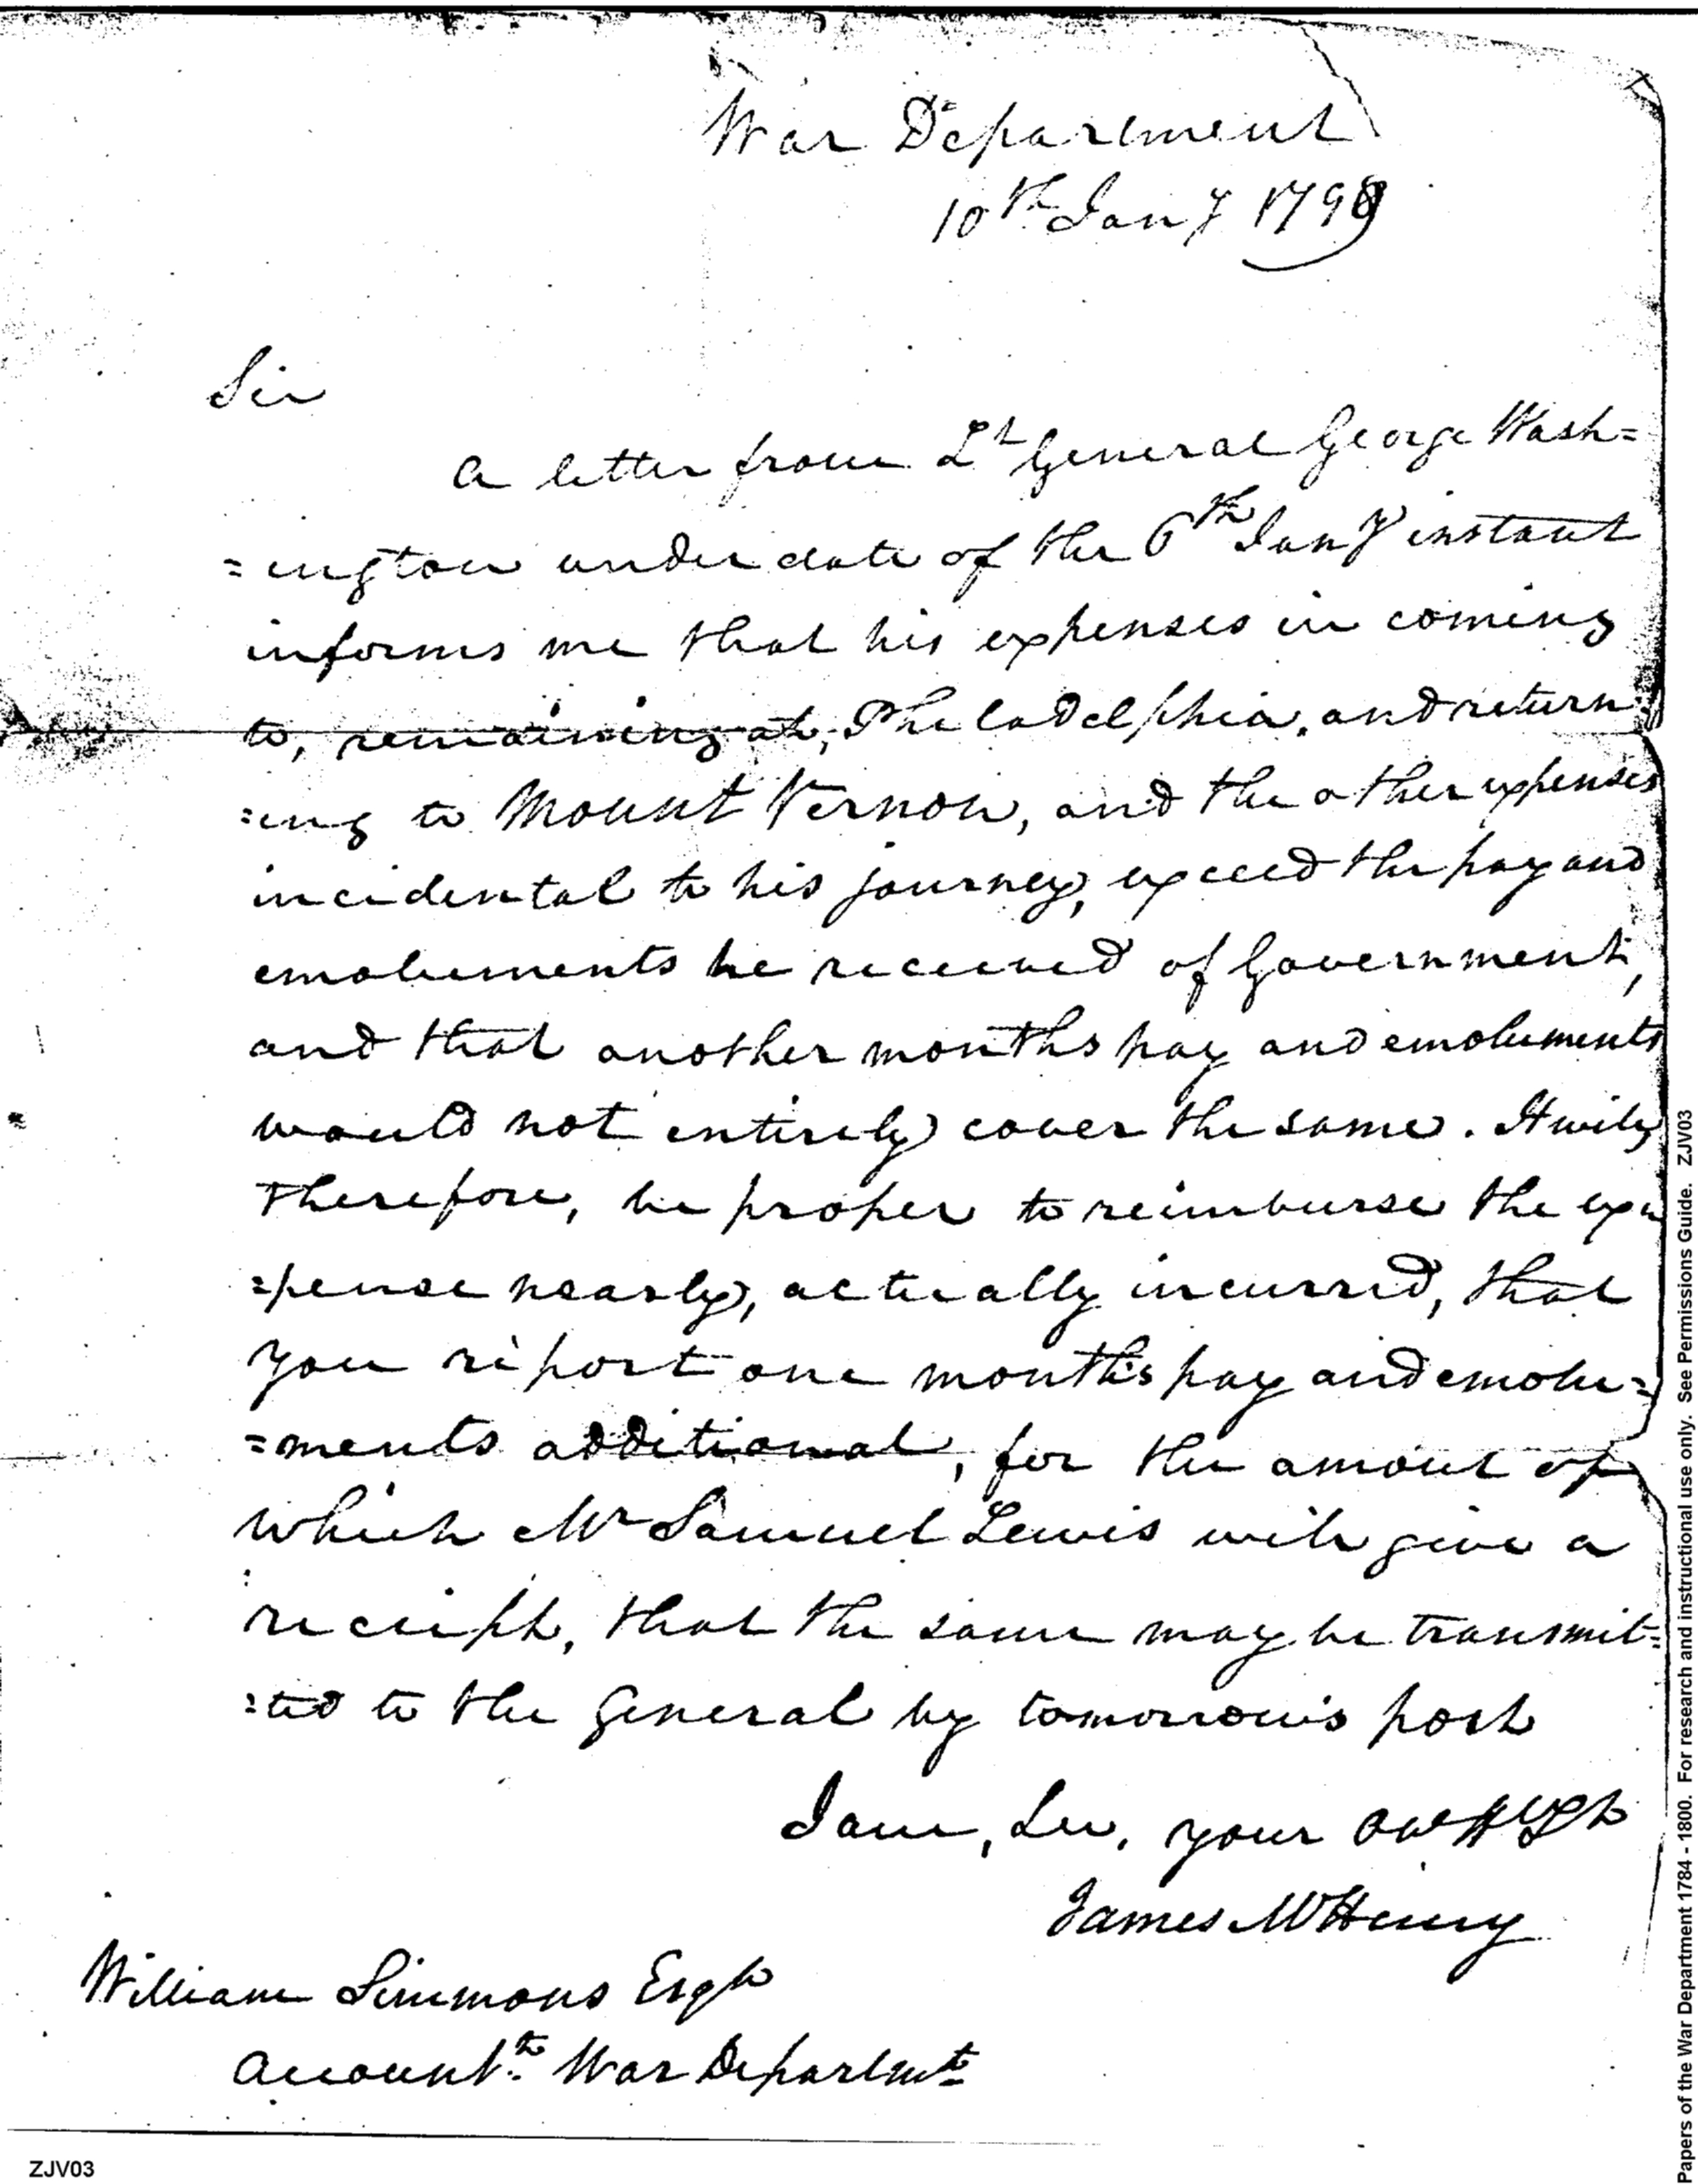 War Department
10th Jany 1799
Sir
A letter from Lt General George Wash=
=ington under date of the 6th Jany instant
informs me that his expenses in coming
to, remaining at, Philadelphia, and return=
=ing to Mount Vernon, and the other expenses
incidental to his journey, exceed the pay and
emoluments he received of Government,
and that another months pay and emoluments
would not entirely cover the same. It will,
therefore, be proper to reimburse the ex=
=pense nearly, actually incurred, that
you report one month's pay and emolu=
=ments additional, for the amount of
which Mr Samuel Lewis will give a
receipt, that the same may be transmit=
=ted to the General by tomorrow's post
I am, Sir, your
James McHenry
William Simmons Esqr
Accountt War Departmt
ZJV03
Papers of the War Department 1784 - 1800. For research and instructional use only. See Permissions Guide. ZJV03